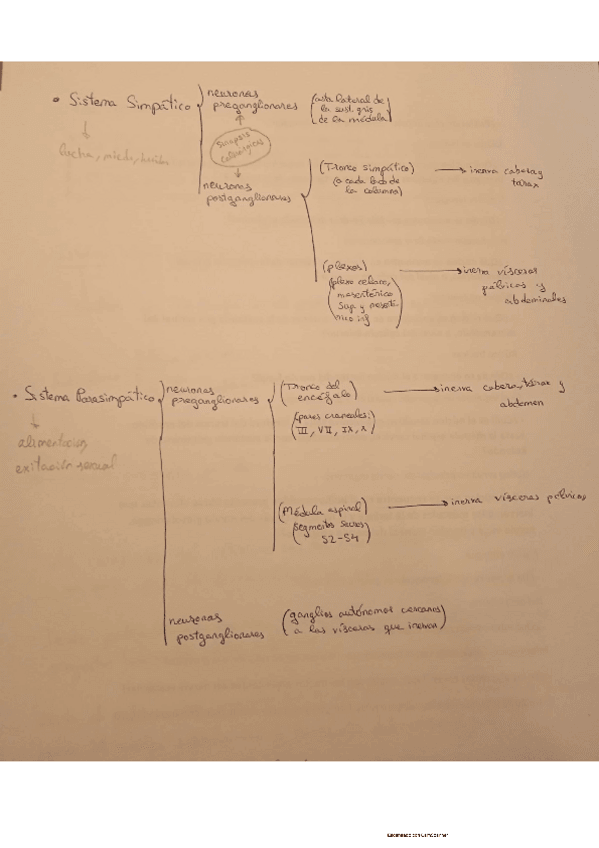 • Sistema Simpático
lucha, miedo, huida
neuronas
preganglionares
(asta lateral de
la sust. gris
de la médula)
Sinapsis
colinérgicas
neuronas
postganglionares
(Tronco simpático)
(a cada lado de
la columna)
inerva cabeza y
tórax
(plexos)
(plexo celiaco,
mesentérico
Sup y mesenté
rico inf)
inerva vísceras
pélvicas y
abdominales
• Sistema Parasimpático
alimentación,
exitación sexual
neuronas
preganglionares
(Tronco del
encéfalo)
(pares craneales:
III, VII, IX, X)
inerva cabeza, tórax y
abdomen
(Médula espinal)
(segmentos sacros
S2-S4)
inerva vísceras pélvicas
neuronas
postganglionares
(ganglios autónomos cercanos
a las vísceras que inervan)
Escaneado con CamScanner